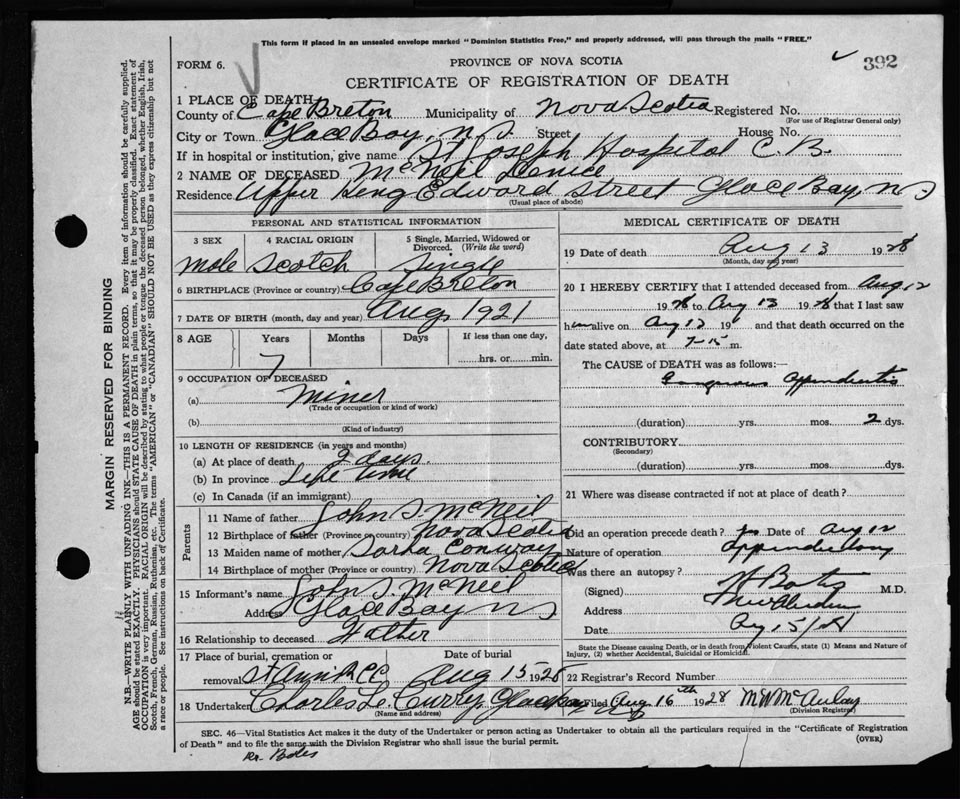 This form if placed in an unsealed envelope marked "Dominion Statistics Free," and properly addressed, will pass through the mails "FREE."
FORM 6.
PROVINCE OF NOVA SCOTIA
392
CERTIFICATE OF REGISTRATION OF DEATH
1 PLACE OF DEATH
County of Cape Breton Municipality of Nova Scotia Registered No.
(For use of Registrar General only)
City or Town Glace Bay, N.S Street House No.
If in hospital or institution, give name St Joseph Hospital C.B.
2 NAME OF DECEASED McNeil Denice
Residence Upper King Edward Street Glace Bay, N S
(Usual place of abode)
PERSONAL AND STATISTICAL INFORMATION
3 SEX 4 RACIAL ORIGIN 5 Single, Married, Widowed or Divorced. (Write the word)
Male Scotch Single
6 BIRTHPLACE (Province or country) Cape Breton
7 DATE OF BIRTH (month, day and year) Aug 1921
8 AGE Years Months Days If less than one day,
7 hrs. or min.
9 OCCUPATION OF DECEASED
(a) Miner
(Trade or occupation or kind of work)
(b)
(Kind of industry)
10 LENGTH OF RESIDENCE (in years and months)
(a) At place of death 2 days.
(b) In province Life time
(c) In Canada (if an immigrant)
Parents
11 Name of father John S. McNeil
12 Birthplace of father (Province or country) Nova Scotia
13 Maiden name of mother Sarha Conway
14 Birthplace of mother (Province or country) Nova Scotia
15 Informant's name John S. McNeil
Address Glace Bay N S
16 Relationship to deceased Father
17 Place of burial, cremation or removal Date of burial
St Ann's R C C Aug 15 1928
18 Undertaker Charles L. Curry, Glace Bay
(Name and address)
MEDICAL CERTIFICATE OF DEATH
19 Date of death Aug 13 1928
(Month, day and year)
20 I HEREBY CERTIFY that I attended deceased from Aug 12
1928 to Aug 13 1928 that I last saw
him alive on Aug 13 19 and that death occurred on
date stated above, at 7-15 m.
The CAUSE OF DEATH was as follows:
Gangrenous Appendicitis
(duration) yrs. mos. 2 dys.
CONTRIBUTORY
(Secondary)
(duration) yrs. mos. dys.
21 Where was disease contracted if not at place of death?
Did an operation precede death? yes Date of Aug 12
Nature of operation Appendectomy
Was there an autopsy?
(Signed) M.D.
Address New Aberdeen
Date Aug 15/28
State the Disease causing Death, or in death from Violent Causes, state (1) Means and Nature of Injury, (2) whether Accidental, Suicidal or Homicidal.
22 Registrar's Record Number
Filed Aug 16th 1928 M W McAulay
(Division Registrar)
SEC. 46—Vital Statistics Act makes it the duty of the Undertaker or person acting as Undertaker to obtain all the particulars required in the "Certificate of Registration
of Death" and to file the same with the Division Registrar who shall issue the burial permit. (OVER)
MARGIN RESERVED FOR BINDING
N.B.—WRITE PLAINLY WITH UNFADING INK—THIS IS A PERMANENT RECORD. Every item of information should be carefully supplied.
AGE should be stated EXACTLY. PHYSICIANS should STATE CAUSE OF DEATH in plain terms, so that it may be properly classified. Exact statement of
OCCUPATION is very important. RACIAL ORIGIN will be described by stating to what people or tongue the deceased person belonged, whether English, Irish,
Scotch, French, German, Russian, Ruthenian, etc. The terms "AMERICAN" or "CANADIAN" SHOULD NOT BE USED as they express citizenship but not
a race or people. See instructions on back of Certificate.